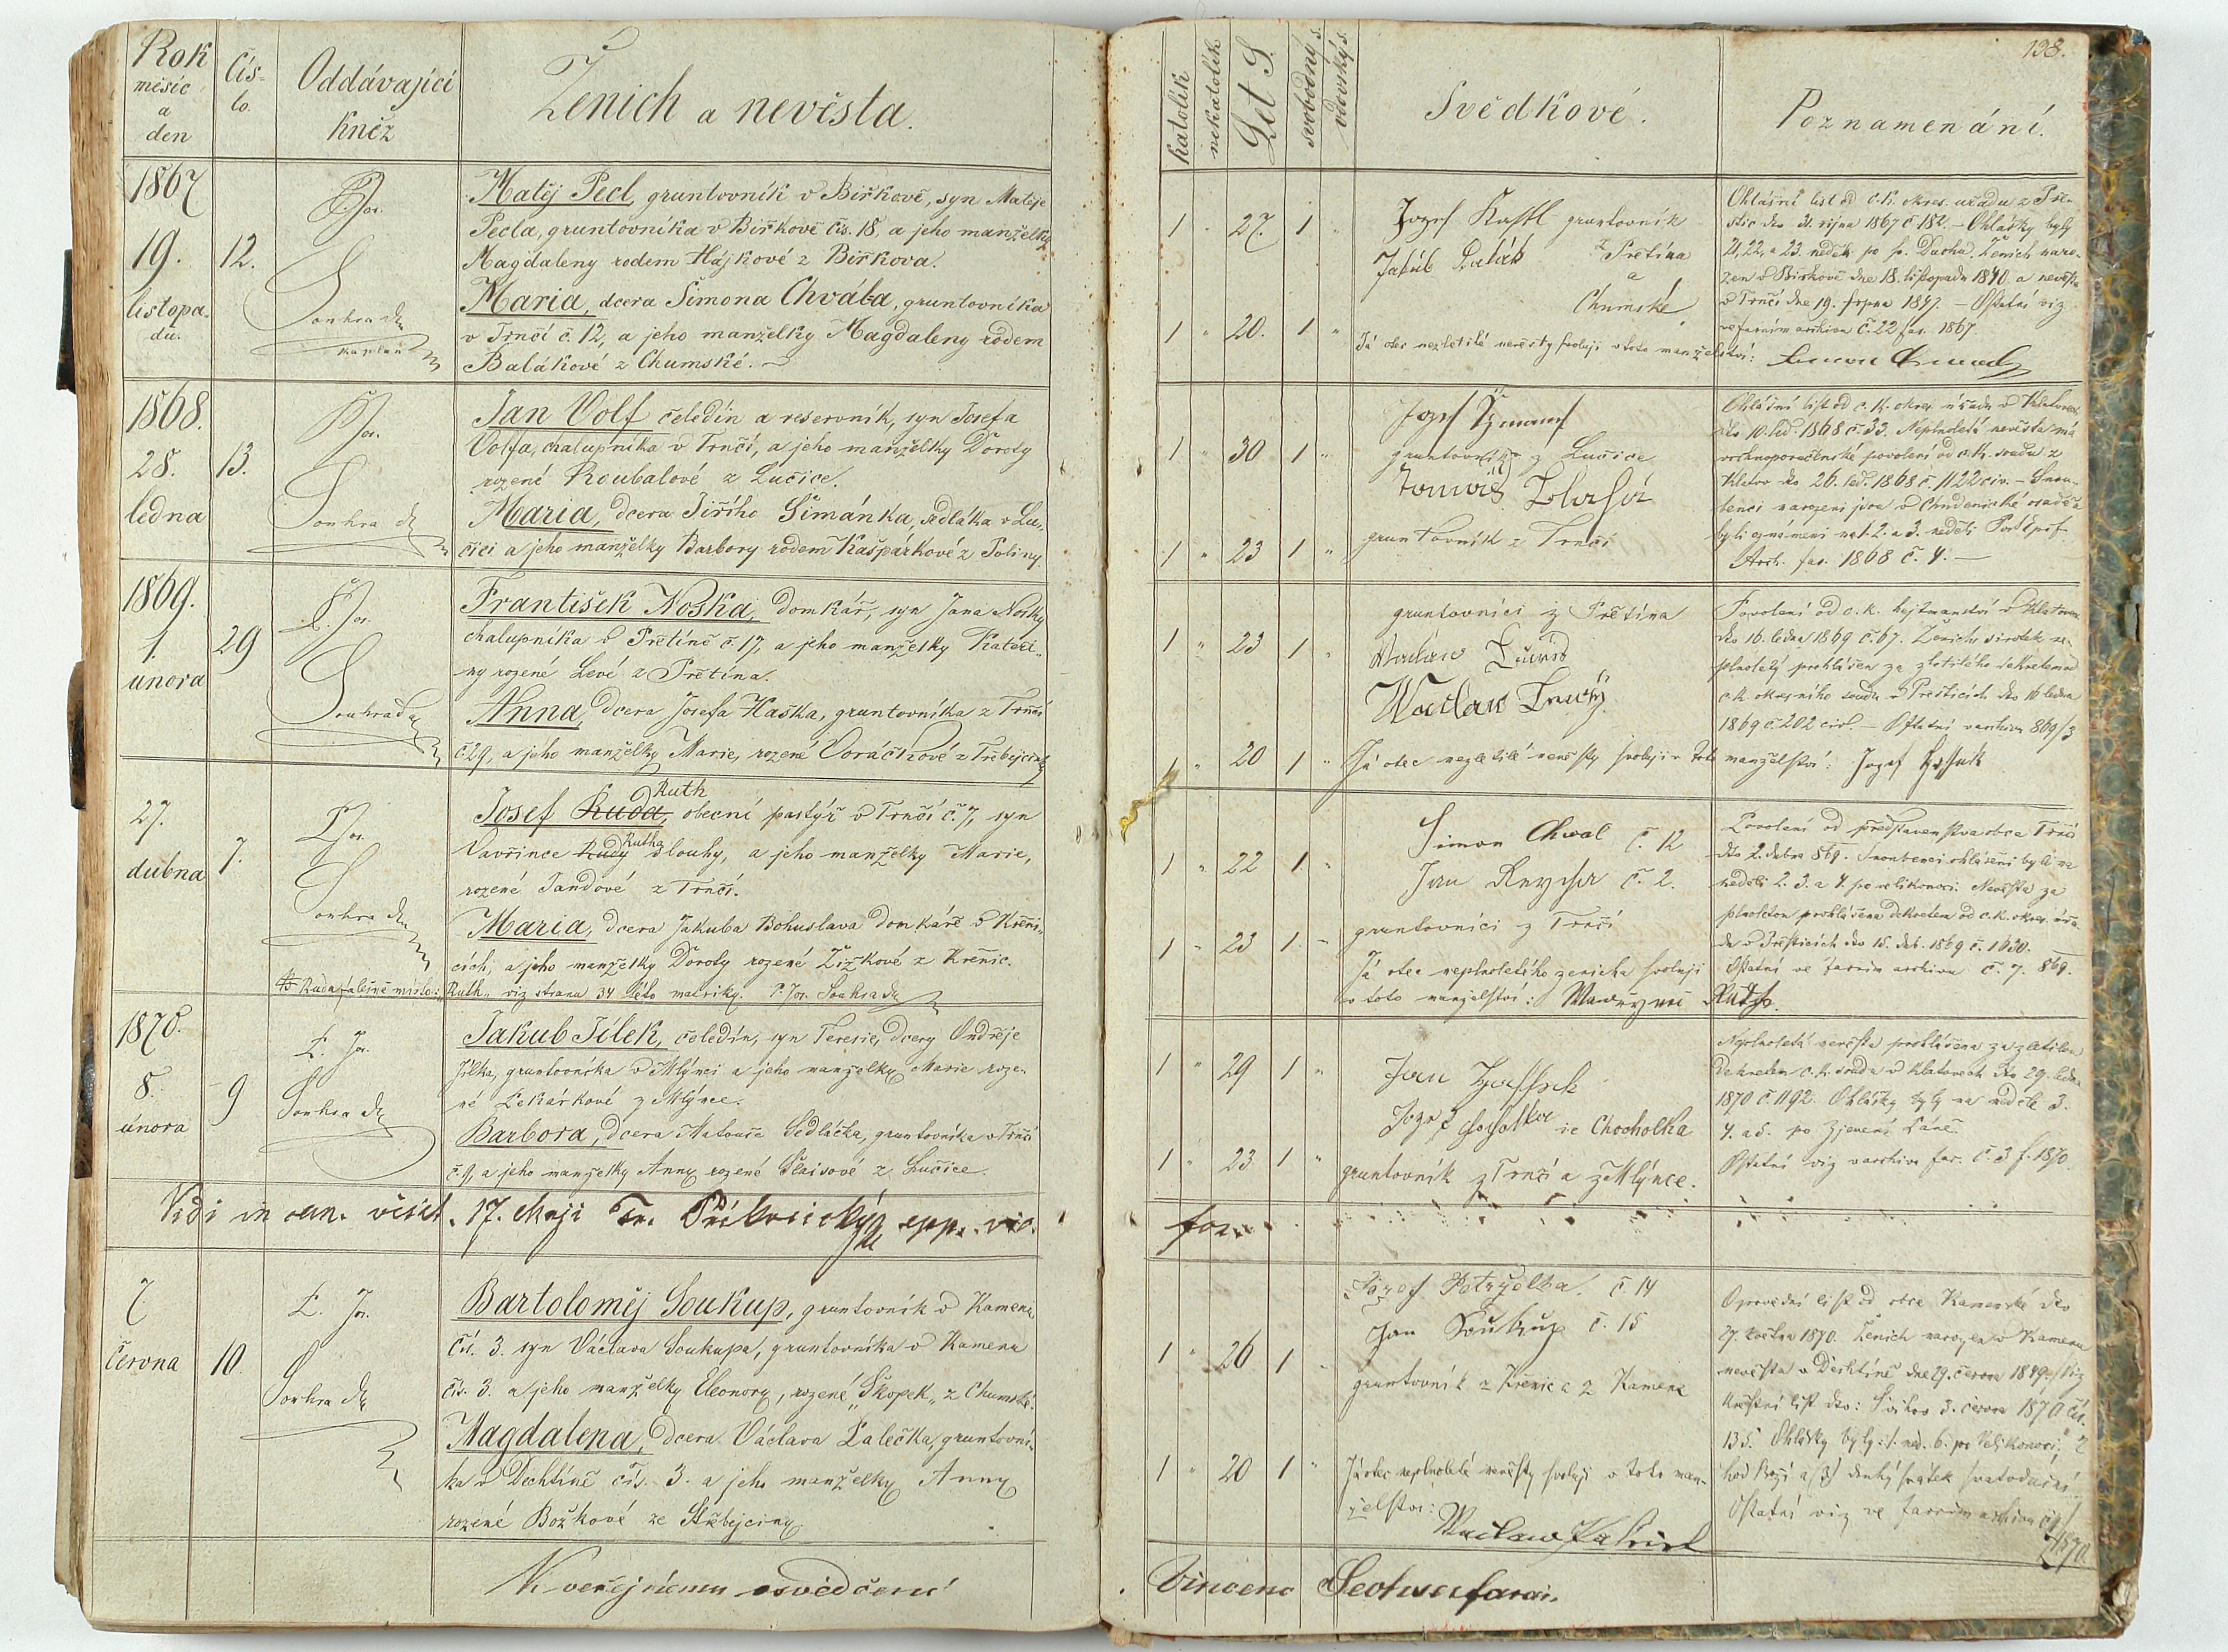 Rok
měsíc
a
den
Čís-
lo.
Oddávající
kněz
Ženich a nevěsta.
1867
19.
listopa-
du.
12.
P. Jos.
Souhrada
kaplan
Matěj Pecl, gruntovník v Biřkově, syn Matěje
Pecla, gruntovníka v Biřkově čís. 18. a jeho manželky
Magdaleny rodem Hájkové z Biřkova.
Maria, dcera Šimona Chvála, gruntovníka
v Trnčí č. 12, a jeho manželky Magdaleny rodem
Balákové z Chumské.
1868.
28.
ledna
13.
P. Jos.
Souhrada
Jan Volf čeledín a reservník, syn Josefa
Volfa, chalupníka v Trnčí, a jeho manželky Doroty
rozené Roubalové z Lučice.
Maria, dcera Jiřího Šimánka, sedláka v Lu-
čici a jeho manželky Barbory rodem Kašpárkové z Poliny.
1869.
1.
února
29
P. Jos.
Souhrada
František Noska, domkář, syn Jana Nosky
chalupníka v Přetíně č. 17, a jeho manželky Kateři-
ny rozené Levé z Přetína.
Anna, dcera Josefa Haška, gruntovníka z Trnčí
č. 29, a jeho manželky Marie, rozené Voráčkové z Třebejciny
27.
dubna
7.
P. Jos.
Souhrada
Ruth
Josef Ruda, obecní pastýř v Trnčí č. 7, syn
Rutha
Vavřince Rudy slouhy, a jeho manželky Marie,
rozené Jandové z Trnčí.
Maria, dcera Jakuba Bohuslava domkáře v Křeni-
cích, a jeho manželky Doroty rozené Žižkové z Křenic.
Ruda falešně místo: Ruth. viz strana 34 této matriky. P. Jos. Souhrada
1870.
8.
února
9
P. Jos.
Souhrada
Jakub Jílek, čeledín, syn Teresie, dcery Ondřeje
Jílka, gruntovníka v Mlýnci a jeho manželky Marie roze-
né Pekárkové z Mlýnce.
Barbora, dcera Matouše Sedláčka, gruntovníka v Trnčí
č. 9, a jeho manželky Anny rozené Šlaisové z Lučice.
Vidi in can. visit. 17. Maji
7
června
10.
P. Jos.
Souhrada
Bartoloměj Soukup, gruntovník v Kamenu
čís. 3. syn Václava Soukupa, gruntovníka v Kamenu
čís. 3. a jeho manželky Eleonory, rozené „Škopek„ z Chumské.
Magdalena, dcera Václava Palečka, gruntovní-
ka v Dechtíně čís. 3. a jeho manželky Anny
rozené Božkové ze Střebejciny.
K veřejnému osvědčení
138.
katolík
nekatolík
Let S.
svobodný s.
vdovský s.
Svědkové.
Poznamenání.
1 " 27. 1 "
1 " 20. 1 "
Jozef Kastl gruntovník
z Přetína
a
Jakub Balák
Chumské
Já otec nezletilé nevěsty svoluji v toto manželství:
Ohlášní list od c. k. okres. úřadu z Pře-
štic dto 31. října 1867 č. 182. – Ohlášky byly
21, 22, a 23. neděli po sv. Duchu. Ženich naro-
zen v Biřkově dne 18. listopadu 1840. a nevěsta
v Trnčí dne 19. srpna 1847. – Ostatní viz
ve farním archivu č. 22 far. 1867.
1 " 30 1 "
1 " 23 1 "
gruntovník z Lučice
gruntovník z Trnčí
Ohlášní list od c. k. okres. úřadu v Klatovech
dto 10. led. 1868 č. 33. Neplnoletá nevěsta má
vrchnoporučenské povolení od c. k. soudu z
Klatov dto 26. led. 1868 č. 1122 civ. – Snou-
benci narozeni jsou v Chudenické osadě a
byli oznámeni na 1. 2. a 3. neděli Post Epif.
Arch. far. 1868 č. 4. –
1 " 23 1 "
1 " 20 1 "
gruntovníci z Přetína
Já otec nezletilé nevěsty svoluji v toto manželství: Jozef Hassek
Povolení od c. k. hejtmanství v Klatovech
dto 16. ledna 1869 č. 67. Ženich sirotek ne-
plnoletý prohlášen za zletilého dekretem od
c. k. okresního soudu v Přešticích dto 16 ledna
1869 č. 202 civ. – Ostatní v archivu 869/3
1 " 22 1 "
1 " 23 1 "
Simon Chwal č. 12
Jan č. 2.
gruntovníci z Trnčí
Já otec neplnoletého ženicha svoluji
v toto manželství: Ruth.
Povolení od představenstva obce Trnčí
dto 2. dubna 869. Snoubenci ohlášeni byli na
neděli 2. 3. a 4. po velikonoci. Nevěsta za
plnoletou prohlášena dekretem od c. k. okres. úřa-
du v Přešticích dto 15. dub. 1869 č. 1630.
Ostatní ve farním archivu č. 7. 869.
1 " 29 1 "
1 " 23 1 "
Jan Hassek
Jozef Chocholka
gruntovník z Trnčí a z Mlýnce.
Neplnoletá nevěsta prohlášena za zletilou
dekretem c. k. soudu v Klatovech dto 29. ledna
1870 č. 1192. Ohlášky byly na neděli 3.
4. a 5. po Zjevení Páně.
Ostatní viz v archivu far. č. 3 f. 1870.
1 " 26 1 "
1 " 20 1 "
Jozef Petrzelka č. 14
Jan Soukup č. 15
gruntovník z Křenic a z Kamene
Já otec neplnoleté nevěsty svoluji v toto man-
želství:
Opovědní list od obce Kamenské dto
27. května 1870. Ženich narozen v Kamenu
nevěsta v Dechtíně dne 29. června 1849. Viz
křestní list dto: Švihov 3. června 1870 čís.
135. Ohlášky byly: 1. ned. 6. po Velikonoci, 2
hod Boží a (3) druhý svátek svatodušní.
Ostatní viz ve farním archivu
1870
Vincenc